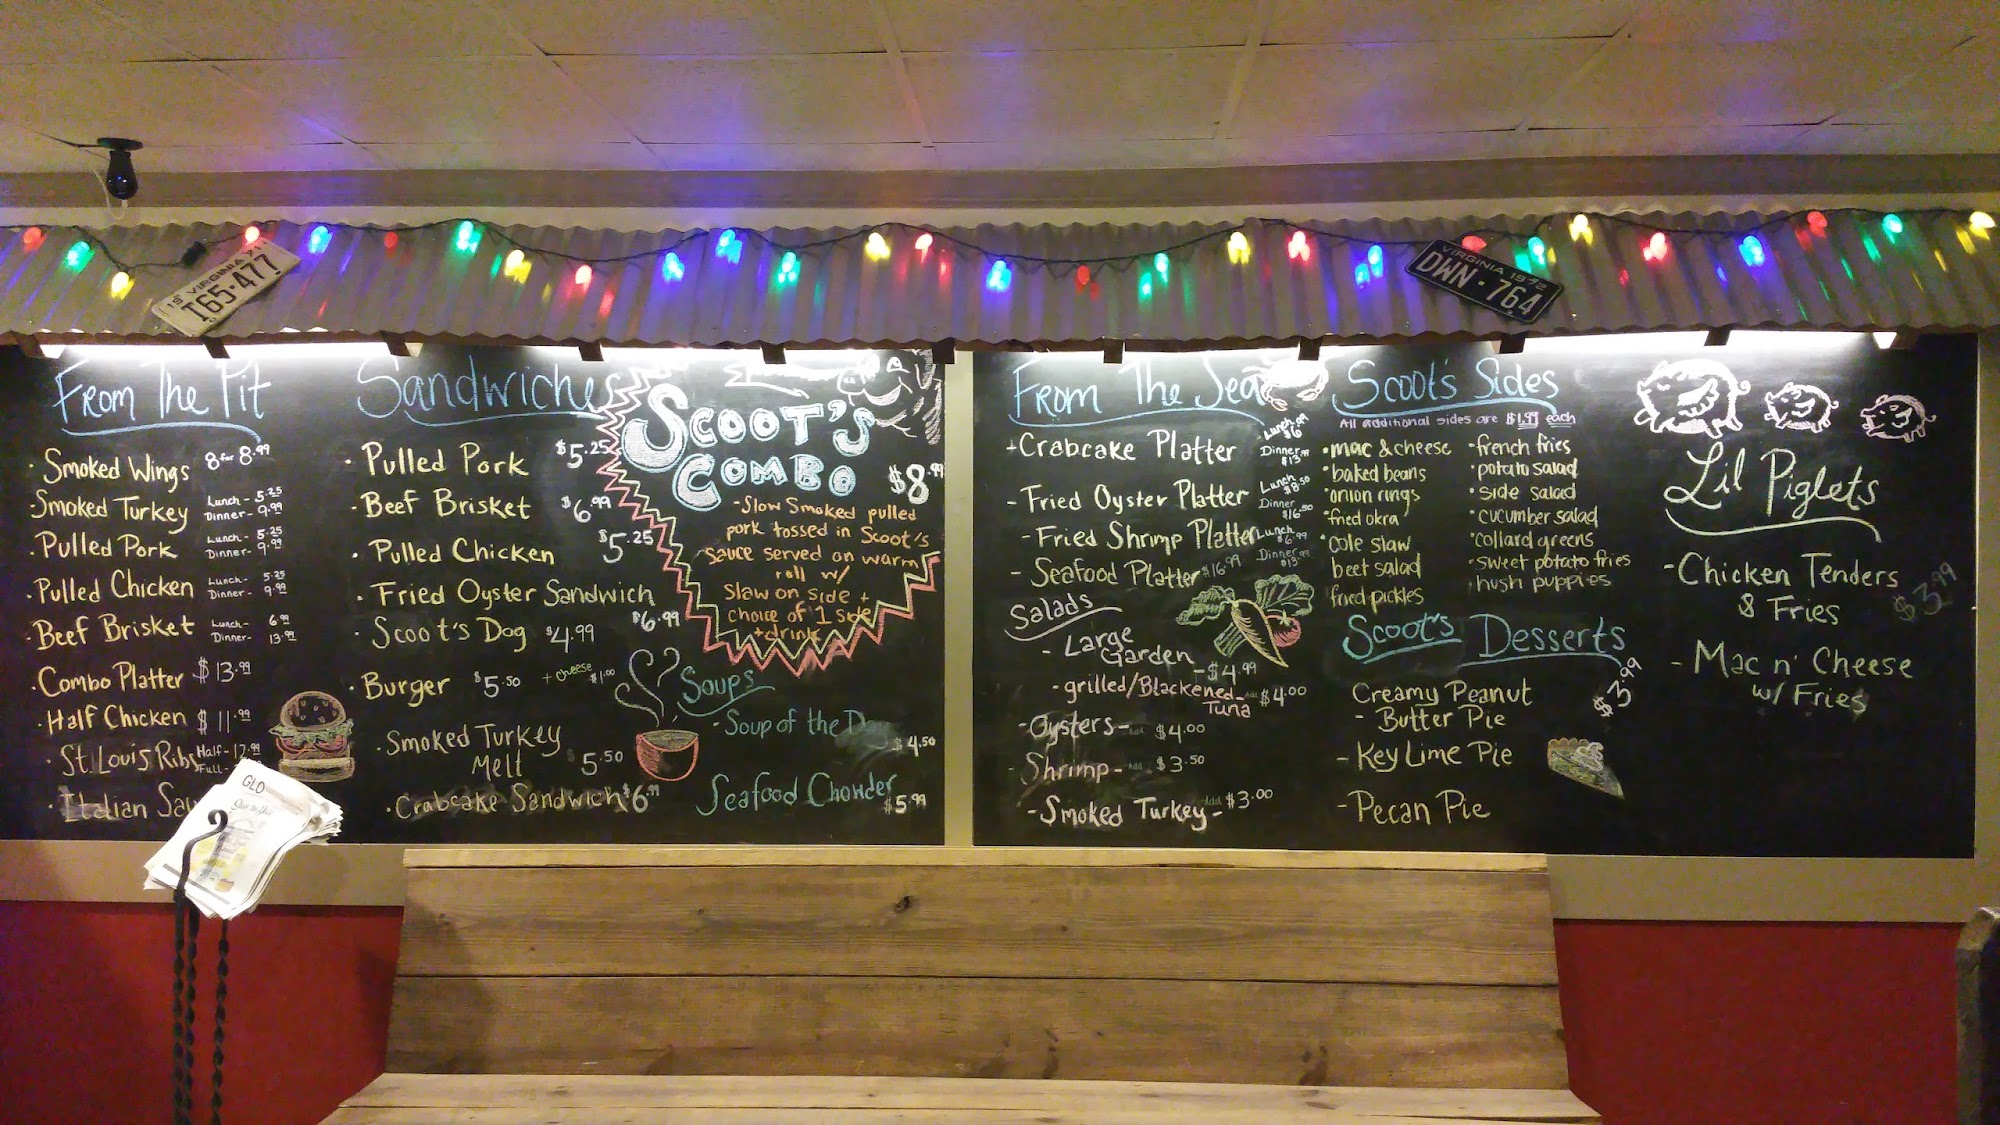 19 VIRGINIA 71
T65-477
VIRGINIA 1972
DWN·764
From The Pit
· Smoked Wings 8 for 8.99
· Smoked Turkey Lunch - 5.25
Dinner - 9.99
· Pulled Pork Lunch - 5.25
Dinner - 9.99
· Pulled Chicken Lunch - 5.25
Dinner - 9.99
· Beef Brisket Lunch - 6.99
Dinner - 13.99
· Combo Platter - $13.99
· Half Chicken $11.99
· St. Louis Ribs Half - 12.99
Full -
· Italian
GLO
Sandwiches
· Pulled Pork $5.25
· Beef Brisket $6.99
· Pulled Chicken $5.25
· Fried Oyster Sandwich $6.99
· Scoot's Dog $4.99
· Burger $5.50 + cheese $1.00
· Smoked Turkey
Melt $5.50
· Crabcake Sandwich $6.99
Scoot's
Combo $8.99
- Slow Smoked pulled
pork tossed in Scoot's
Sauce served on warm
roll w/
Slaw on side +
choice of 1 side
+ drink
Soups
- Soup of the Day $4.50
Seafood Chowder $5.99
From The Sea
- Crabcake Platter Lunch
Dinner
- Fried Oyster Platter Lunch $8.50
Dinner $16.50
- Fried Shrimp Platter Lunch $6.99
Dinner $13.99
- Seafood Platter $16.99
Salads
- Large
Garden - $4.99
- grilled/Blackened
Tuna - add $4.00
- Oysters - add $4.00
- Shrimp - add $3.50
- Smoked Turkey - add $3.00
Scoot's Sides
All additional sides are $1.99 each
· mac & cheese
· baked beans
· onion rings
· fried okra
· cole slaw
beet salad
fried pickles
· french fries
· potato salad
· side salad
· cucumber salad
· collard greens
· sweet potato fries
· hush puppies
Scoot's Desserts
$3.99
Creamy Peanut
- Butter Pie
- Key Lime Pie
- Pecan Pie
Lil Piglets
- Chicken Tenders
& Fries
$3.99
- Mac n' Cheese
w/ Fries